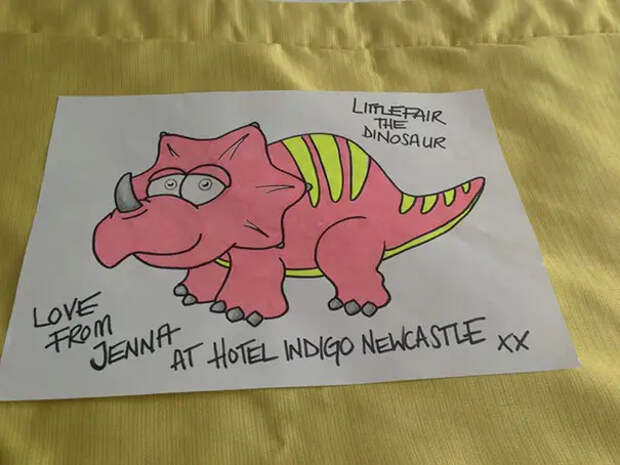 LITTLEFAIR
THE
DINOSAUR
LOVE
FROM
JENNA AT HOTEL INDIGO NEWCASTLE XX